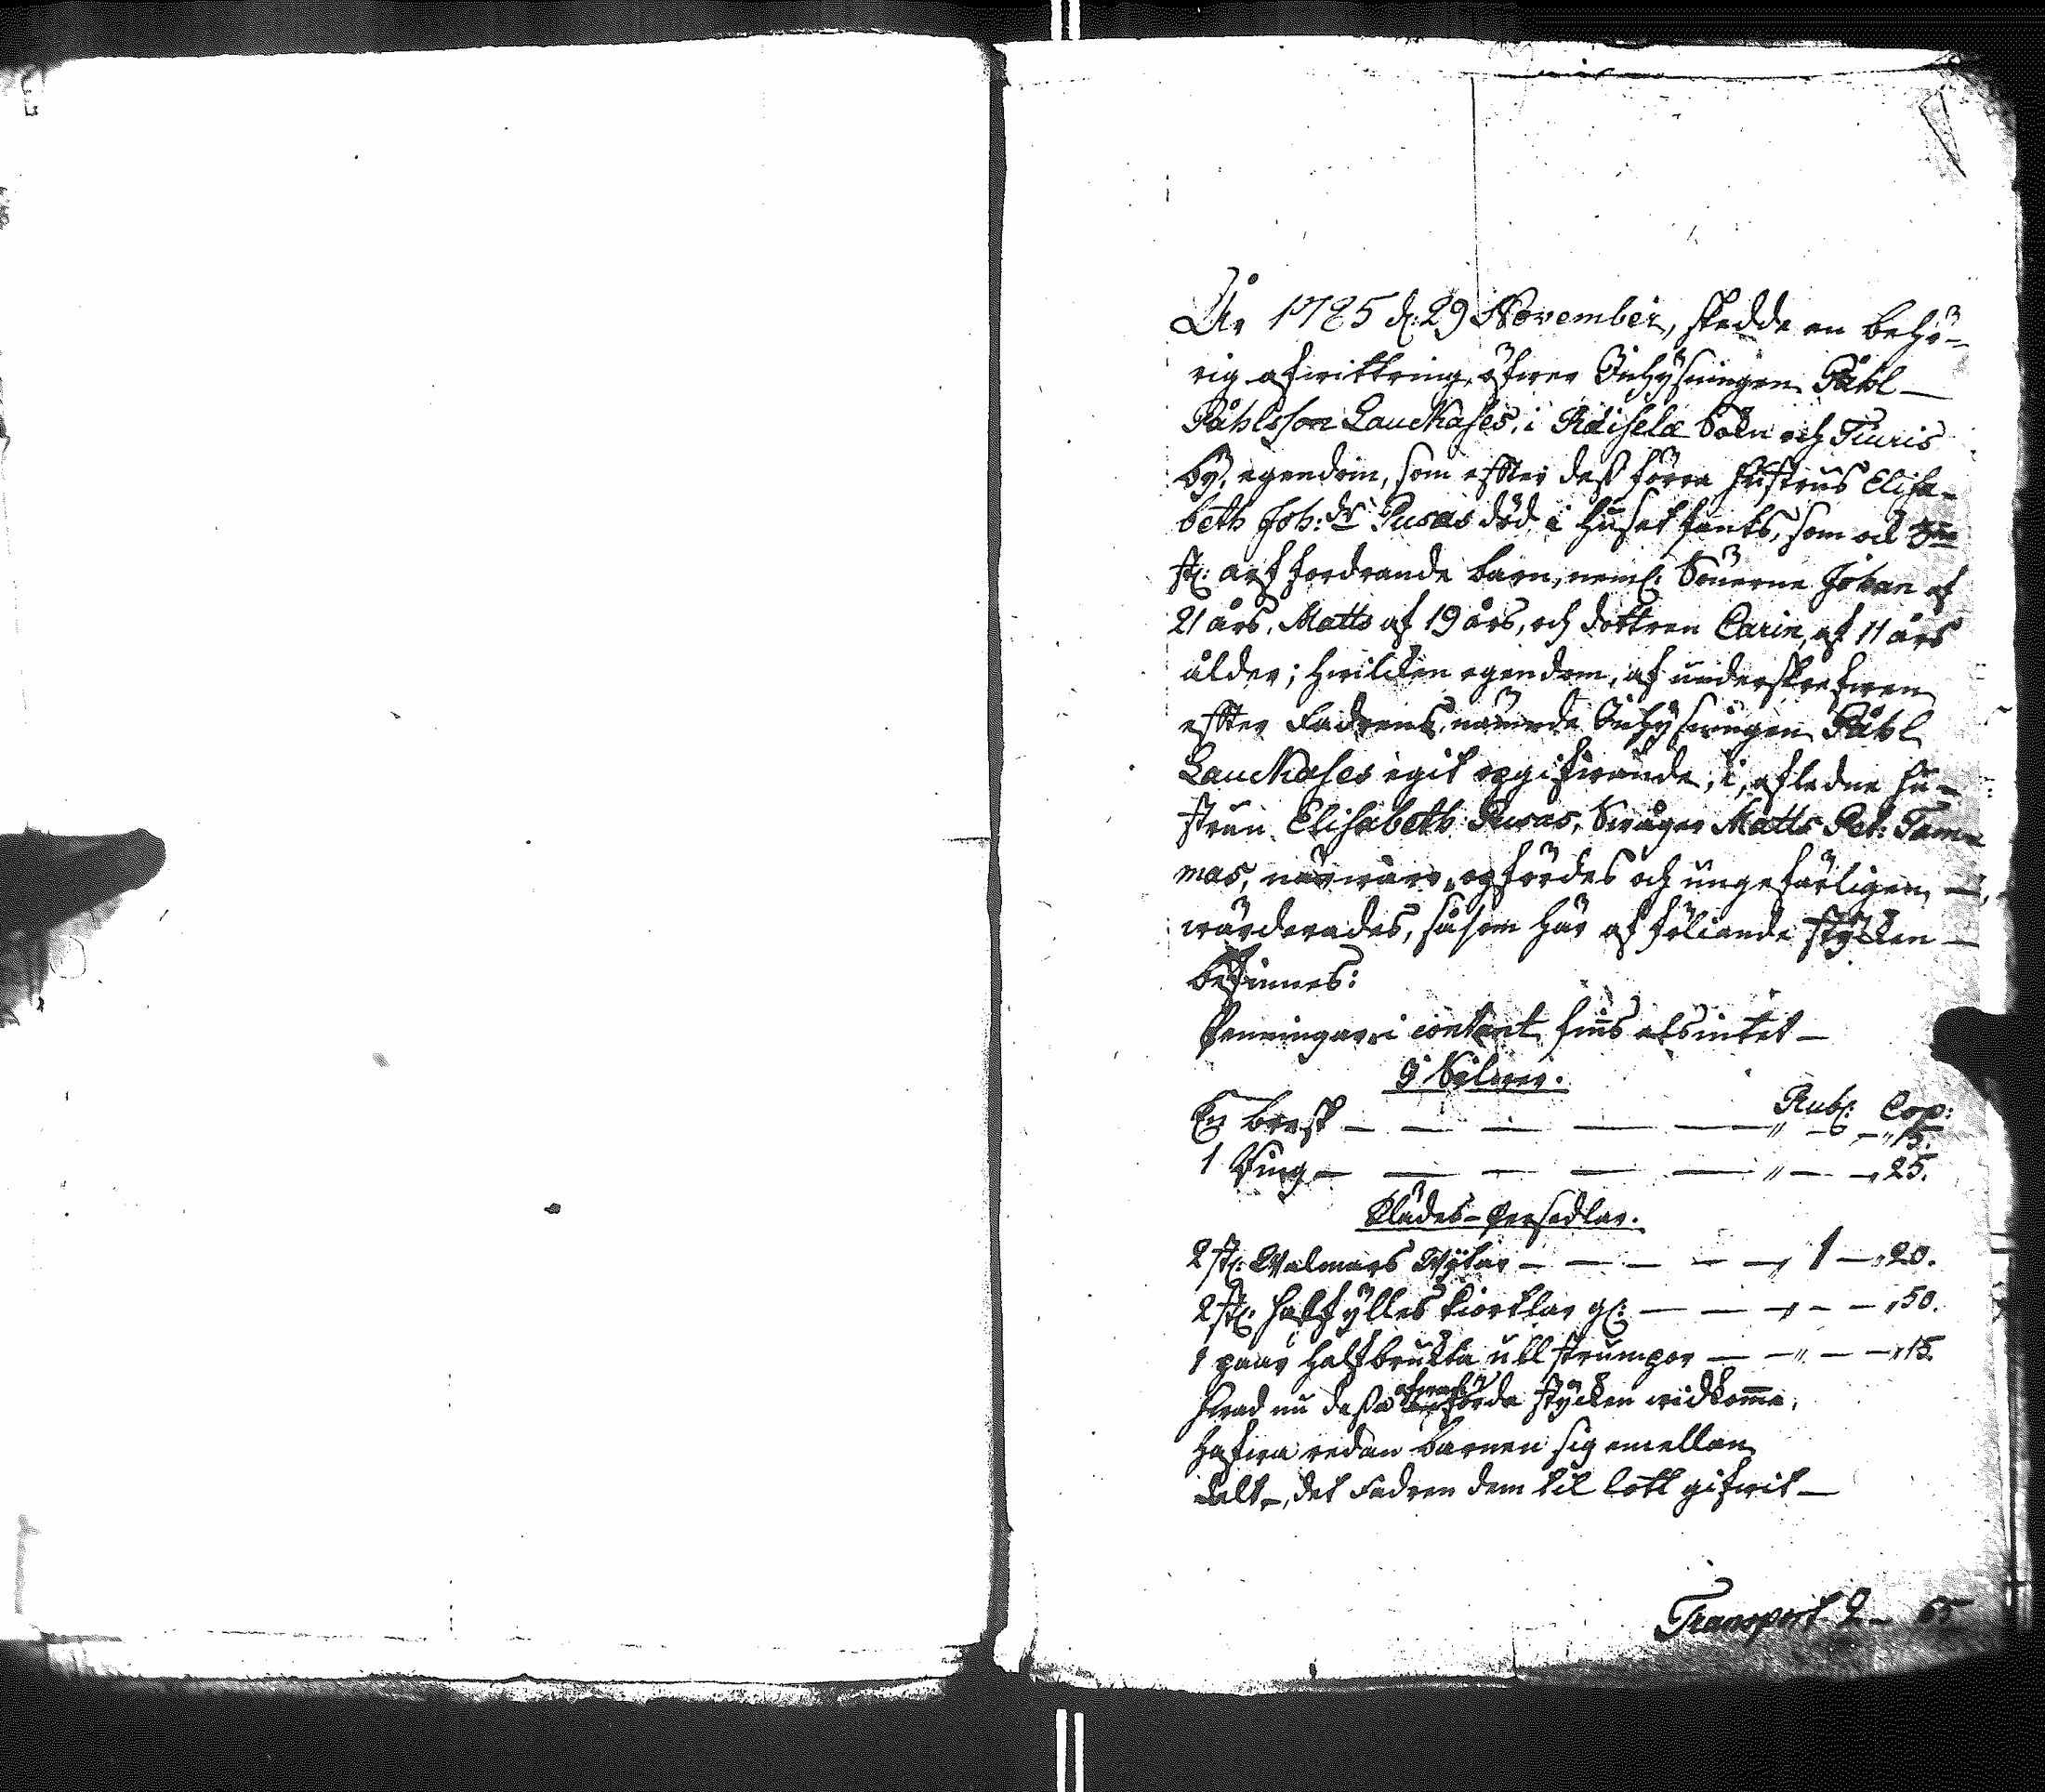 År 1785 d: 29 November, skedde en behö-
rig afwittring, öfwer Inhysningen Påhl
Påhlsson Lauckases, i Räiselæ Sokn och Tiuris
by, egendom, som effter dess förra hustrus Elisa-
beth Joh: dr Pusas död i huset fants, som och 3ne
st: arf fordrande barn, neml: Sönerne Johan af
21 års, Matts af 19 års, och dottren Carin, af 11 års
ålder; hwilcken egendom, af underskrefwen
effter Fadrens, nämde Inhysingen Påhl
Lauckases egit opgifwande, i, afledne hu-
strun Elisabeth Pusas, Swåger Matts Pet: Tam-
mas, närwaro, opfördes och ungefärligen
wärderades, såsom här af föliande stycken
befinnes:
Penningar i contant fins alsintet
I Silwer.
Rub: Cop:
En bresk — — — — — " — — " 15.
1 Ring — — — — — " — — " 25.
Klädes-Persedlar.
2 st: Walmars Wijtar — — — — " 1 — " 20.
2 st: halfylles kiortlar gl: — — " — — " 50.
1 paar halfbrukta ull strumpor — — " — — " 15.
Hwad nu dessa förda stycken widkomma,
hafwa redan barnen sig emellan
delt, det Fadren dem til lott gifwit
Transport 2 — 65